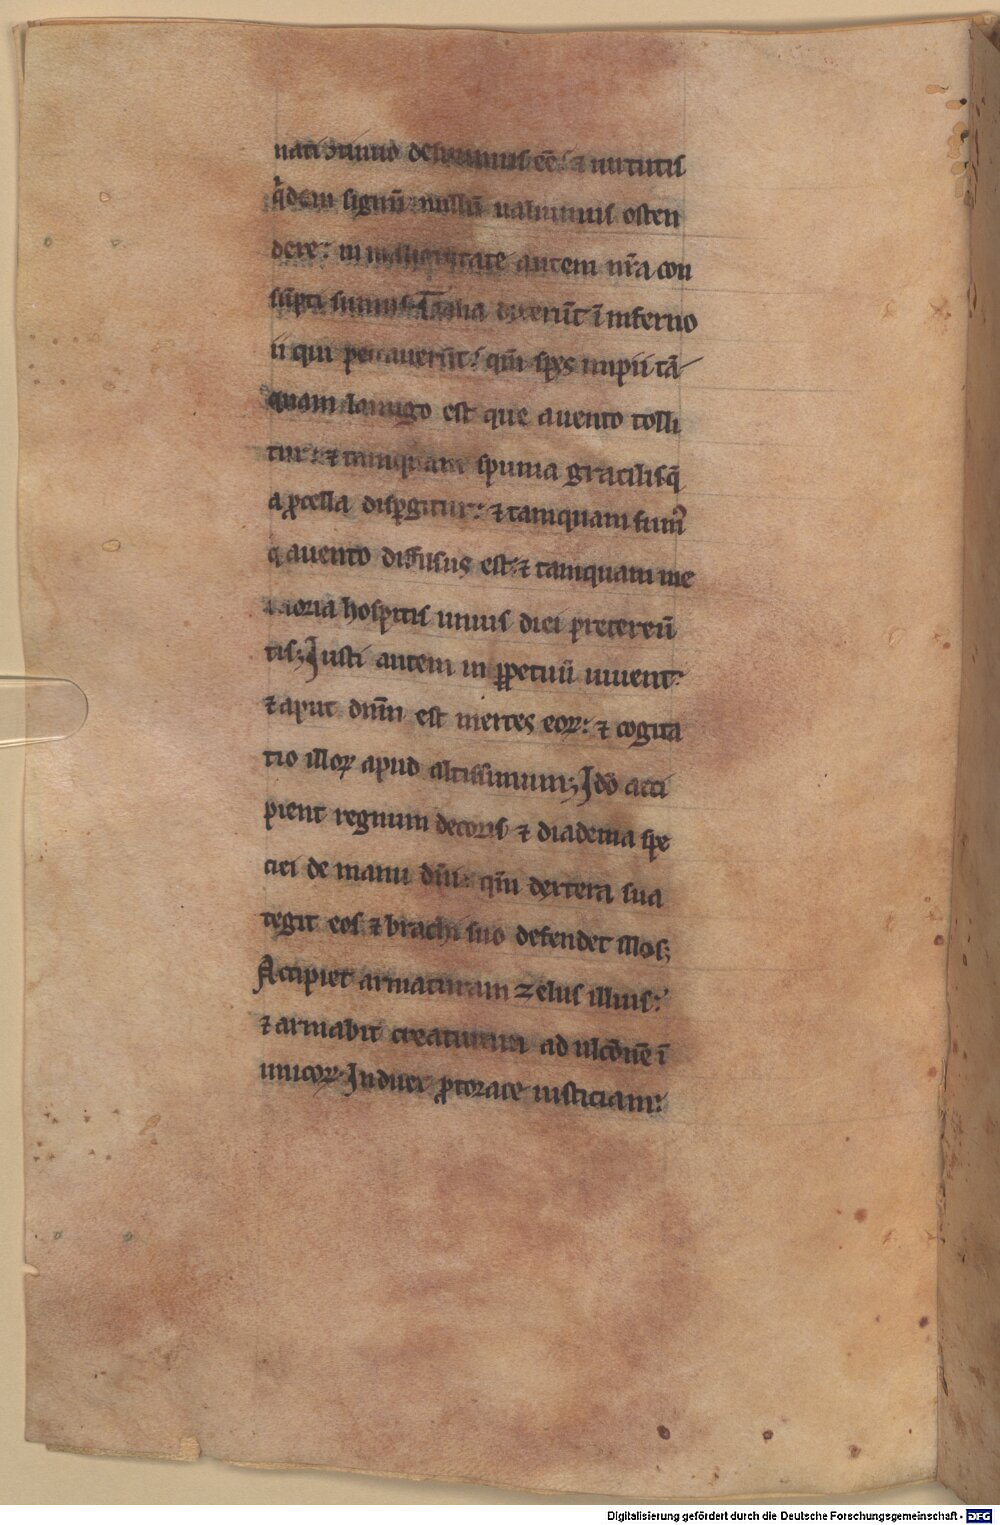 nati ↄtinuo desiuimus eē: ⁊ uirtutis
q̇dem signū nullū ualuimus osten
dere: in malignitate autem nr̄a con
sūpti sumus. Talia dixerūt ī inferno
ii qui peccauerūt: qm̄ spes impii tā
quam lanugo est que auento tolli
tur: ⁊ tamquam spuma gracilis q̄
a ꝓcella disꝑgitur: ⁊ tamquam fumꝰ
q auento diffusus est: ⁊ tamquam me
moria hospitis unius diei pretereū
tis; Iusti autem in ꝑpetuū uiuent:
⁊ aput dnm̄ est merces eoꝝ: ⁊ cogita
tio illoꝝ apud altissimum; Idō acci
pient regnum decoris ⁊ diadema spe
ciei de manu dn̄i: qm̄ dextera sua
tegit eos ⁊ brachi suo defendet illos;
Accipiet armaturam zelus illius:
⁊ armabit creaturam ad ulcōnē ī
imicoꝝ. Induet ꝓ torace iusticiam:
Digitalisierung gefördert durch die Deutsche Forschungsgemeinschaft - DFG